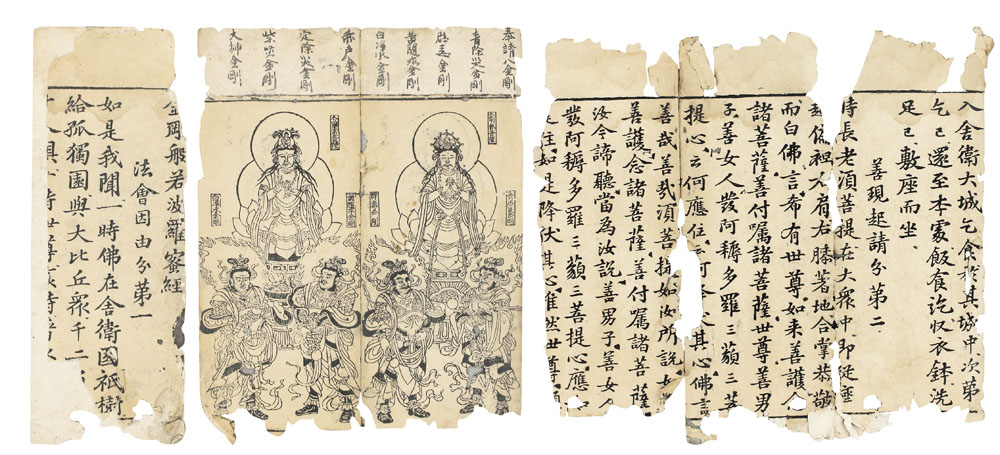 金罡般若波羅蜜經
法會因由分第一
如是我聞一時佛在舍衛國祇樹
給孤獨園與大比丘眾千二
人俱
奉請八金剛
青除災金剛
辟毒金剛
黃隨求金剛
白淨水金剛
赤声金剛
定除災金剛
紫賢金剛
大神金剛
入舍衛大城乞食於其城中次第
乞已還至本處飯食訖収衣鉢洗
足已敷座而坐
善現起請分第二
時長老須菩提在大眾中即從座
偏袒右肩右膝著地合掌恭敬
而白佛言希有世尊如來善護
諸菩薩善付囑諸菩薩世尊善男
子善女人發阿耨多羅三藐三菩
提心云何應住云何降伏其心佛言
善哉善哉須菩提如汝所說
善護念諸菩薩善付囑諸菩薩
汝今諦聽當為汝說善男子善女
發阿耨多羅三藐三菩提心應
是住如是降伏其心唯然世尊